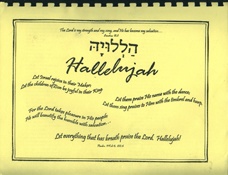 The Lord is my strength and my song, and He has become my salvation...
הַלְלוּיָהּ
Hallelujah
Let Israel rejoice in their Maker.
Let the children of Zion be joyful in their King
Let them praise His name with the dance,
Let them sing praises to Him with the timbrel and harp.
For the Lord takes pleasure in His people.
He will beautify the humble with salvation...
Let everything that has breath praise the Lord. Hallelujah!